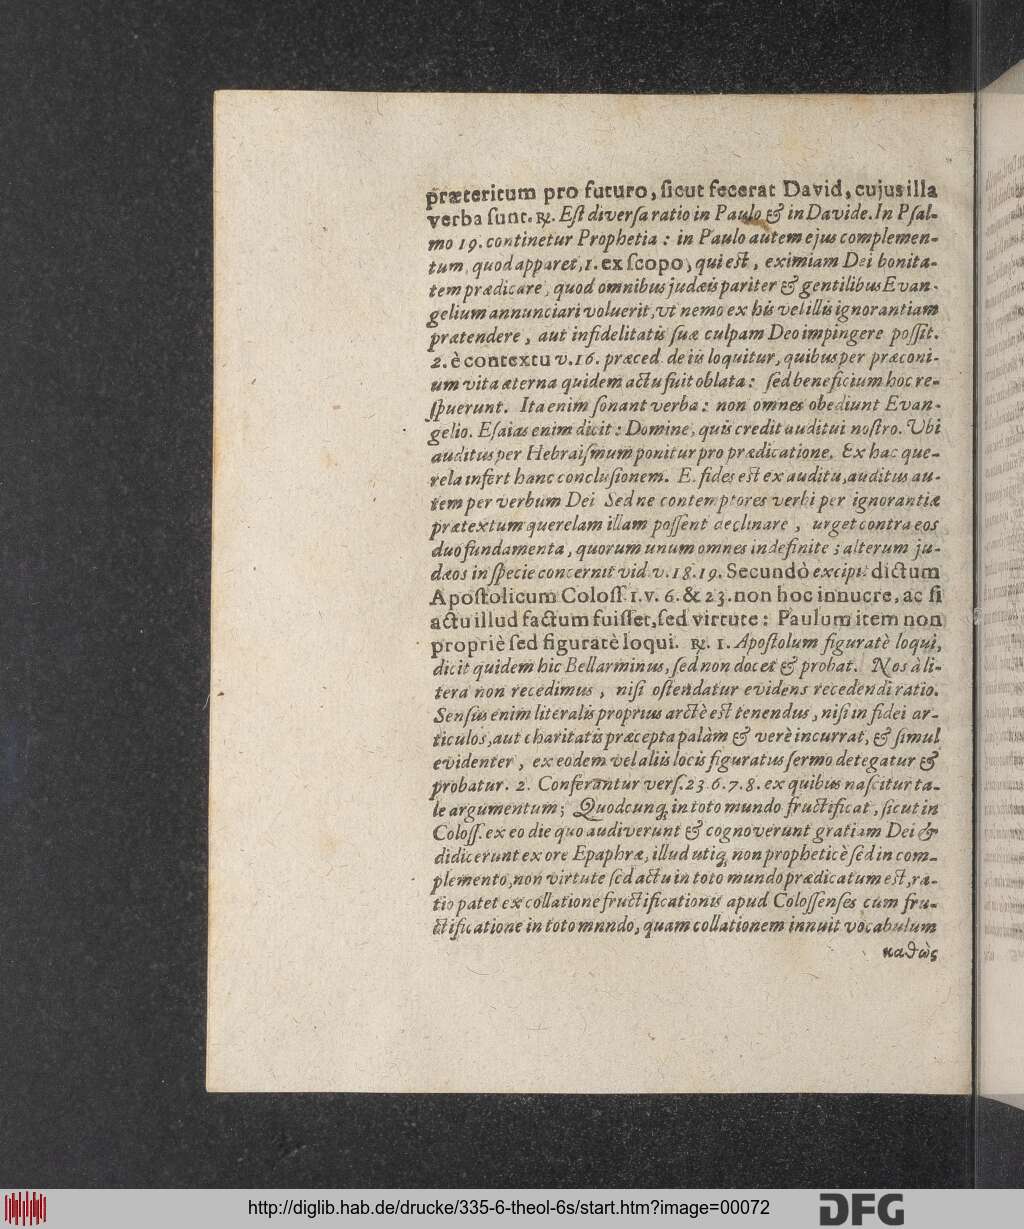 prætericum pro futuro, sicut fecerat David, cujus illa
verba sunt. ꝶ. Est diversa ratio in Paulo & in Davide. In Psal-
mo 19. continetur Prophetia: in Paulo autem ejus complemen-
tum, quod apparet, 1. ex scopo, qui est, eximiam Dei bonita-
tem prædicare, quod omnibus judæis pariter & gentilibus Evan-
gelium annunciari voluerit, ut nemo ex his vel illis ignorantiam
prætendere, aut infidelitatis suæ culpam Deo impingere possit.
2. è contextu v. 16. præced. de iis loquitur, quibus per præconi-
um vita æterna quidem actu fuit oblata: sed beneficium hoc re-
spuerunt. Ita enim sonant verba: non omnes obediunt Evan-
gelio. Esaias enim dicit: Domine, quis credit auditui nostro. Ubi
auditus per Hebraismum ponitur pro prædicatione. Ex hac que-
rela infert hanc conclusionem. E. fides est ex auditu, auditus au-
tem per verbum Dei Sed ne contemptores verbi per ignorantiæ
prætextum querelam illam possent declinare, urget contra eos
duo fundamenta, quorum unum omnes indefinite; alterum ju-
dæos in specie concernit vid. v. 18. 19. Secundò excipit dictum
Apostolicum Coloss. 1. v. 6. & 23. non hoc innuere, ac si
actu illud factum fuisset, sed virtute: Paulum item non
propriè sed figuratè loqui. ꝶ. 1. Apostolum figuratè loqui,
dicit quidem hic Bellarminus, sed non docet & probat. Nos à li-
tera non recedimus, nisi ostendatur evidens recedendi ratio.
Sensus enim literalis proprius arctè est tenendus, nisi in fidei ar-
ticulos, aut charitatis præcepta palàm & verè incurrat, & simul
evidenter, ex eodem vel aliis locis figuratus sermo detegatur &
probatur. 2. Conferantur vers. 23 6. 7. 8. ex quibus nascitur ta-
le argumentum; Quodcunq; in toto mundo fructificat, sicut in
Coloss. ex eo die quo audiverunt & cognoverunt gratiam Dei &
didicerunt ex ore Epaphræ, illud utiq; non propheticè sed in com-
plemento, non virtute sed actu in toto mundo prædicatum est, ra-
tio patet ex collatione fructificationis apud Colossenses cum fru-
ctificatione in toto mnndo, quam collationem innuit vocabulum
καθὼς
http://diglib.hab.de/drucke/335-6-theol-6s/start.htm?image=00072
DFG